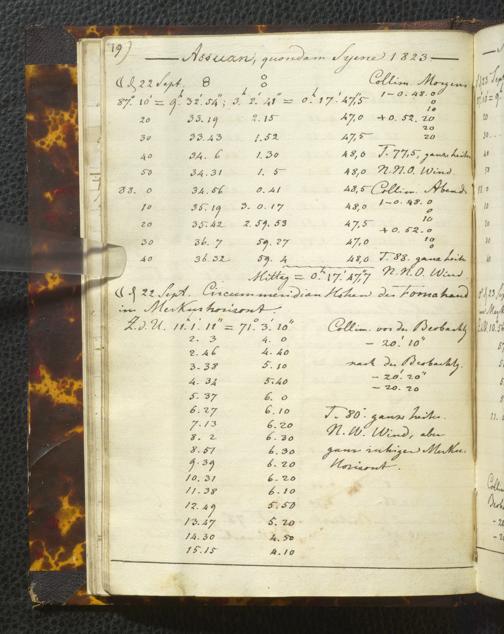 19)
Assuan, quondam Syene 1823
☾ d. 22 Sept. 8 8 Collim. Morgens
87° 10' = 9h 32' 54"; 3h 2' 41" = 0h 17' 47,5 1-0.48.0
0
10
20 33.19 2.15 47,0 +0.52.20
20
20
30 33.43 1.52 47,5
40 34.6 1.30 48,0 T. 77,5, ganz heiter
50 34.31 1.5 48,0 N.N.O. Wind
88. 0 34.56 0.41 48,5 Collim. Abends
10 35.19 3.0.17 48,0 1-0.48.0
0
10
20 35.42 2.59.53 47,5
+0.52.0
10
0
30 36.7 59.27 47,0
40 36.32 59.4 48,0 T. 88. ganz heiter
Mittag = 0h 17' 47,7 N.N.O. Wind
☾ d. 22 Sept. Circummeridian Höhen des Fomahand
im Merkurhorizont.
Z.d.U. 11h 1' 12" = 71° 3' 10" Collim. vor der Beobachtg
2.3 4.0 - 20' 10"
2.46 4.40
3.38 5.10 nach der Beobachtg.
4.34 5.40 - 20' 20"
- 20.20
5.37 6.0
6.27 6.10 T. 80. ganz heiter
7.13 6.20 N.W. Wind, aber
8.2 6.30 ganz ruhiger Merkur
8.51 6.30
Horizont.
9.39 6.20
10.31 6.20
11.38 6.10
12.49 5.50
13.47 5.20
14.30 4.50
15.15 4.10